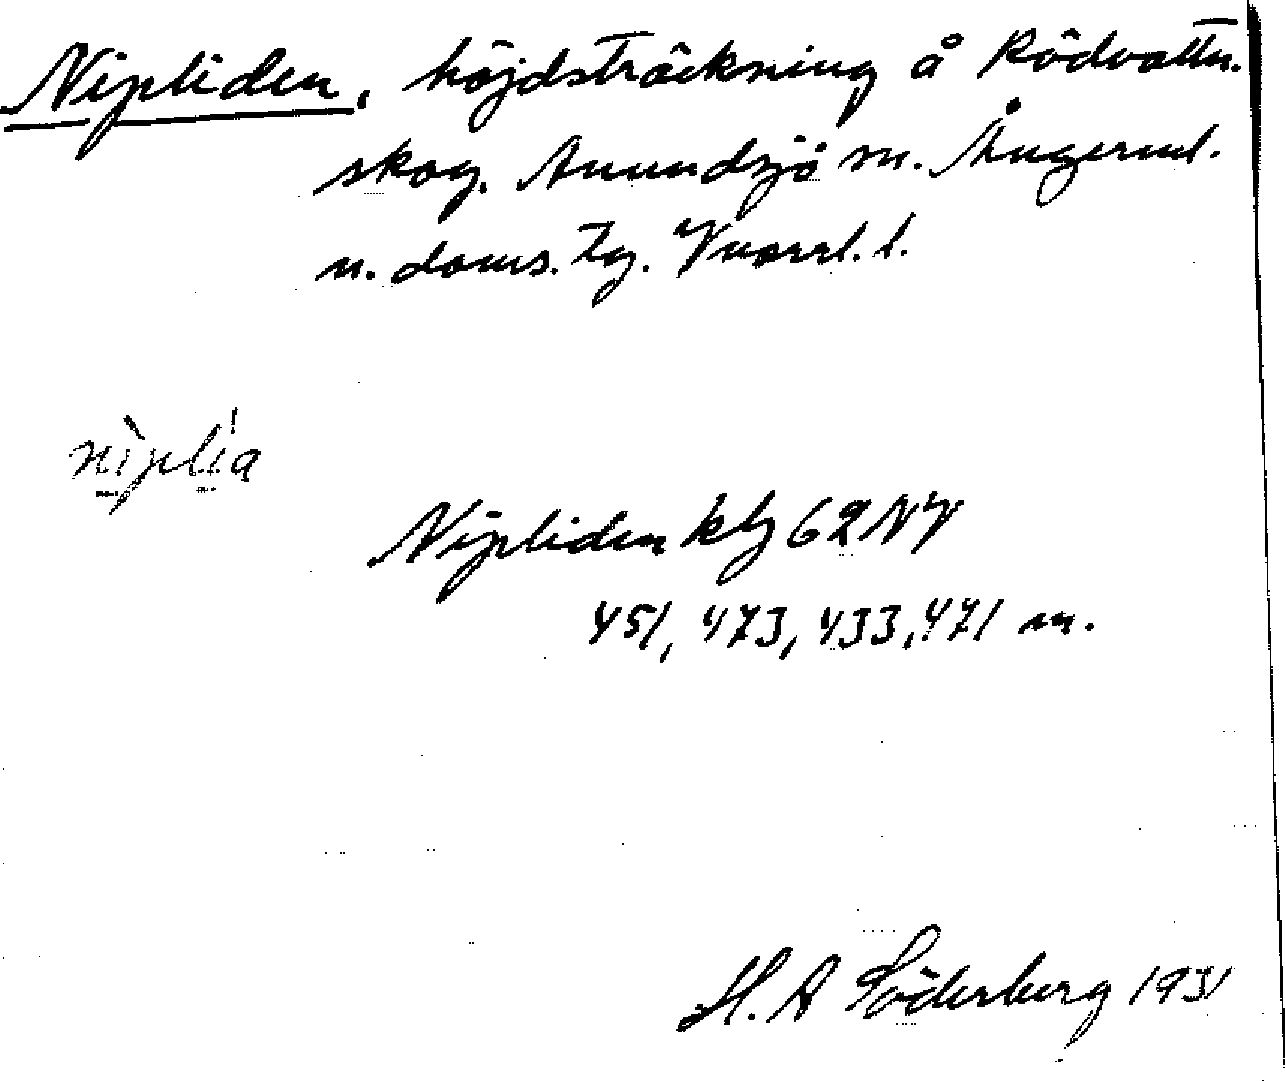 Nipliden, höjdsträckning å Rödvattn.
skog. Anundsjö sn. Ångerml.
n. doms. tg. Vnorrl. l.
nìplía
Nipliden kbl 62 NV
451, 473, 433, 471 m.
H. A Söderberg 1931